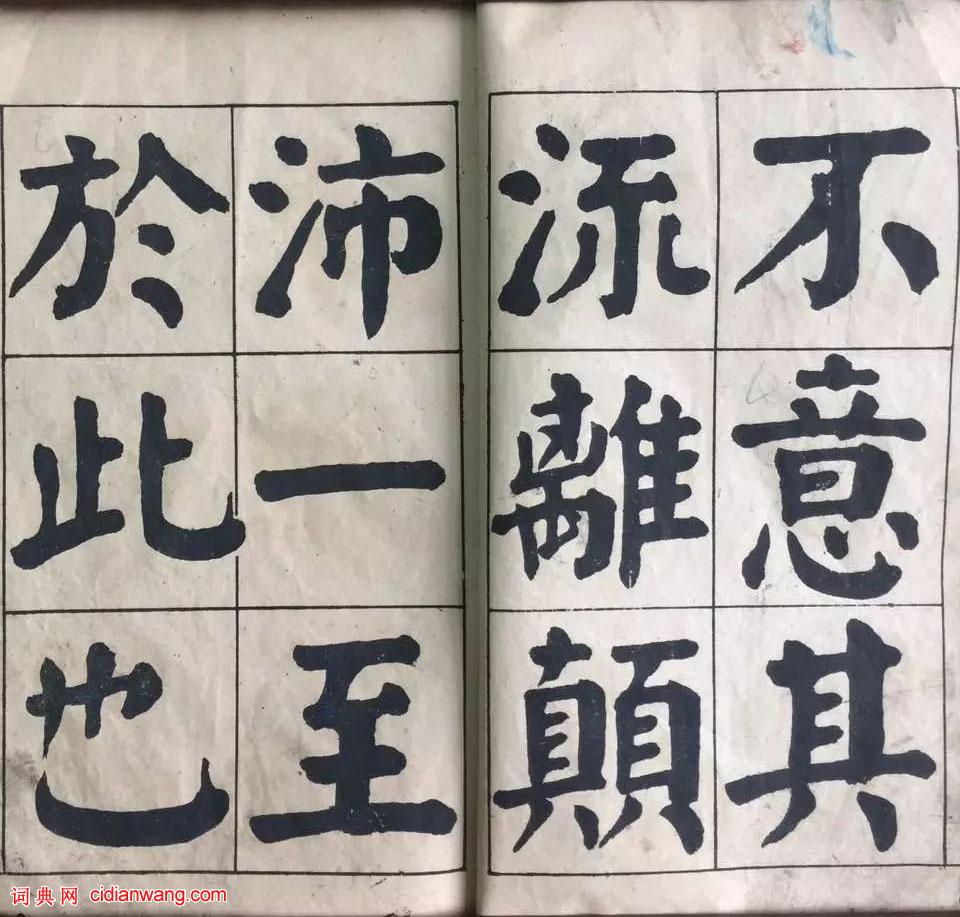 不意其
流離顛
沛一至
於此也
词典网 cidianwang.com